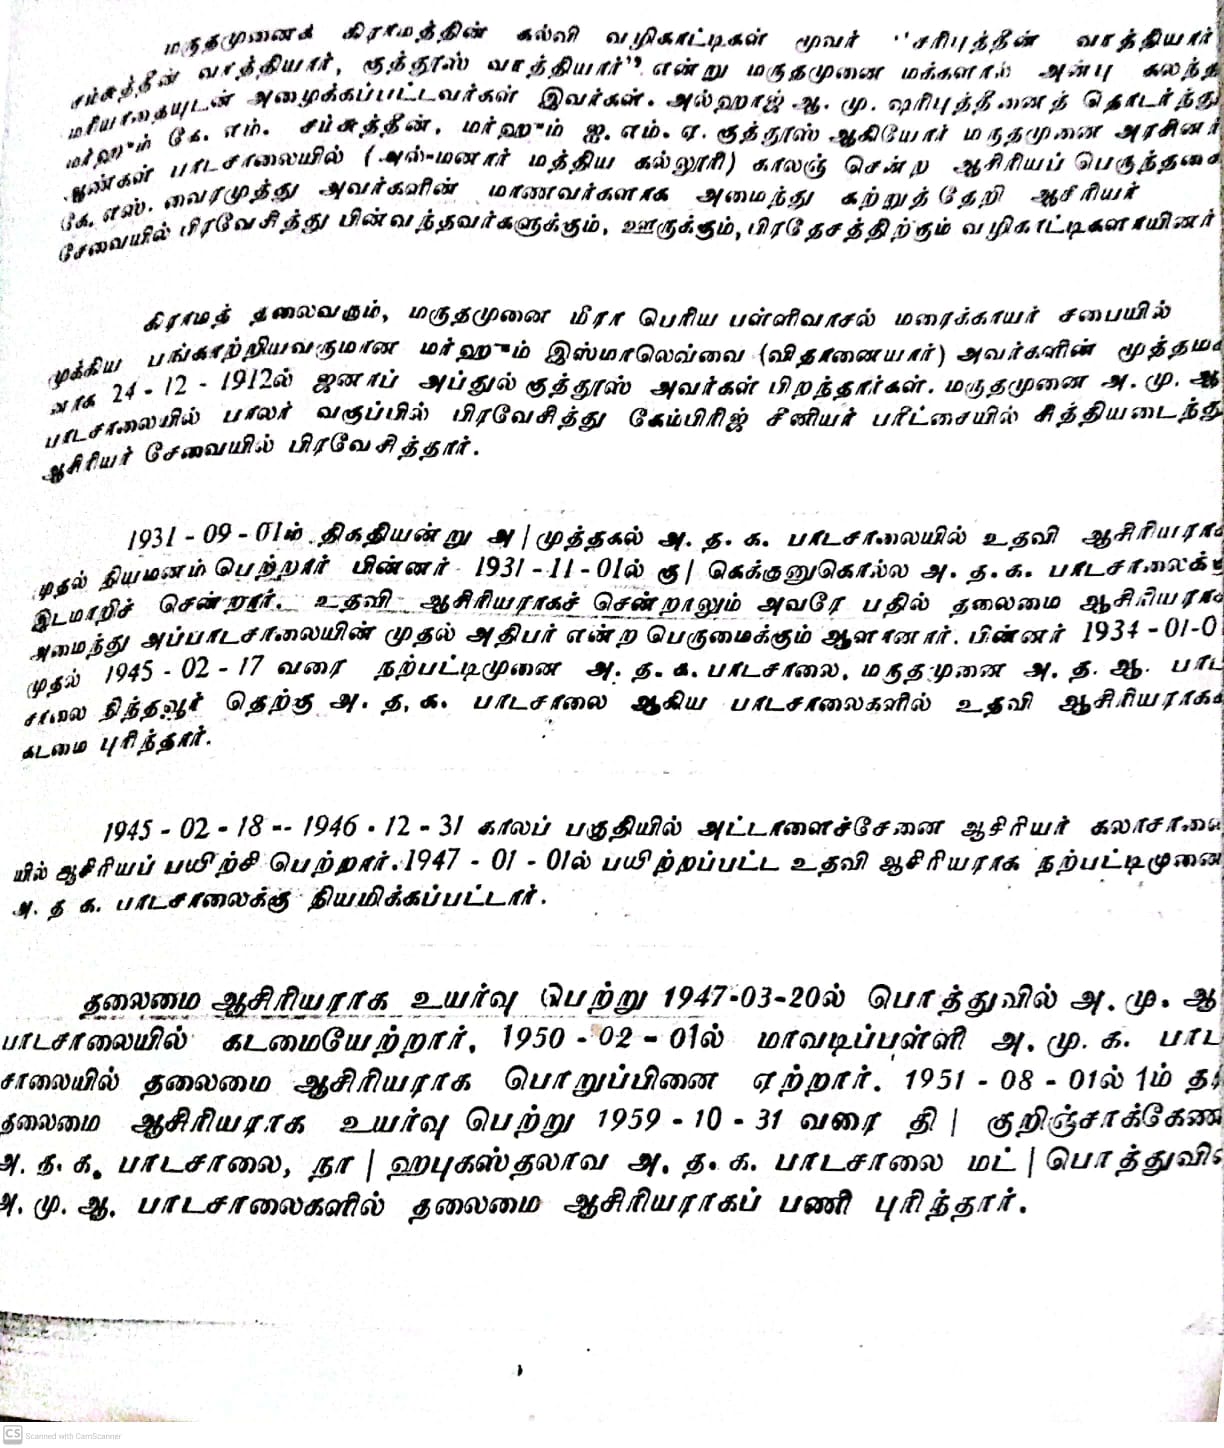 மருதமுனைக் கிராமத்தின் கல்வி வழிகாட்டிகள் மூவர் "சரிபுத்தீன் வாத்தியார்
சம்சுத்தீன் வாத்தியார், குத்தூஸ் வாத்தியார்" என்று மருதமுனை மக்களால் அன்பு கலந்த
மரியாதையுடன் அழைக்கப்பட்டவர்கள் இவர்கள். அல்ஹாஜ் ஆ. மு. ஷரிபுத்தீனைத் தொடர்ந்து
மர்ஹூம் கே. எம். சம்சுத்தீன், மர்ஹூம் ஐ. எம். ஏ. குத்தூஸ் ஆகியோர் மருதமுனை அரசினர்
ஆண்கள் பாடசாலையில் (அல்-மனார் மத்திய கல்லூரி) காலஞ் சென்ற ஆசிரியப் பெருந்தகை
கே. எஸ். வைரமுத்து அவர்களின் மாணவர்களாக அமைந்து கற்றுத்தேறி ஆசிரியர்
சேவையில் பிரவேசித்து பின்வந்தவர்களுக்கும், ஊருக்கும், பிரதேசத்திற்கும் வழிகாட்டிகளாயினர்
கிராமத் தலைவரும், மருதமுனை மீரா பெரிய பள்ளிவாசல் மரைக்காயர் சபையில்
முக்கிய பங்காற்றியவருமான மர்ஹூம் இஸ்மாலெவ்வை (விதானையார்) அவர்களின் மூத்தமக
வாக 24 - 12 - 1912ல் ஜனாப் அப்துல் குத்தூஸ் அவர்கள் பிறந்தார்கள். மருதமுனை அ. மு. ஆ
பாடசாலையில் பாலர் வகுப்பில் பிரவேசித்து கேம்பிரிஜ் சீனியர் பரீட்சையில் சித்தியடைந்து
ஆசிரியர் சேவையில் பிரவேசித்தார்.
1931 - 09 - 01ம் திகதியன்று அ | முத்தகல் அ. த. க. பாடசாலையில் உதவி ஆசிரியராக
முதல் நியமனம் பெற்றார் பின்னர் 1931 - 11 - 01ல் கு | கெக்குனுகொல்ல அ. த. க. பாடசாலைக்கு
இடமாறிச் சென்றார். உதவி ஆசிரியராகச் சென்றாலும் அவரே பதில் தலைமை ஆசிரியராக
அமைந்து அப்பாடசாலையின் முதல் அதிபர் என்ற பெருமைக்கும் ஆளானார். பின்னர் 1934 - 01-0
முதல் 1945 - 02 - 17 வரை நற்பட்டிமுனை அ. த. க. பாடசாலை, மருதமுனை அ. த. ஆ. பாட
சாலை நிந்தவூர் தெற்கு அ. த, க. பாடசாலை ஆகிய பாடசாலைகளில் உதவி ஆசிரியராகக்
கடமை புரிந்தார்.
1945 - 02 - 18 -- 1946 - 12 - 31 காலப் பகுதியில் அட்டாளைச்சேனை ஆசிரியர் கலாசாலை
யில் ஆசிரியப் பயிற்சி பெற்றார். 1947 - 01 - 01ல் பயிற்றப்பட்ட உதவி ஆசிரியராக நற்பட்டிமுனை
அ. த க. பாடசாலைக்கு நியமிக்கப்பட்டார்.
தலைமை ஆசிரியராக உயர்வு பெற்று 1947-03-20ல் பொத்துவில் அ. மு. ஆ
பாடசாலையில் கடமையேற்றார். 1950 - 02 - 01ல் மாவடிப்பள்ளி அ. மு. க. பாட
சாலையில் தலைமை ஆசிரியராக பொறுப்பினை ஏற்றார். 1951 - 08 - 01ல் 1ம் த
தலைமை ஆசிரியராக உயர்வு பெற்று 1959 - 10 - 31 வரை தி | குறிஞ்சாக்கேணி
அ. த. க. பாடசாலை, நா | ஹபுகஸ்தலாவ அ. த. க. பாடசாலை மட் | பொத்துவில்
அ. மு. ஆ. பாடசாலைகளில் தலைமை ஆசிரியராகப் பணி புரிந்தார்.
CS Scanned with CamScanner